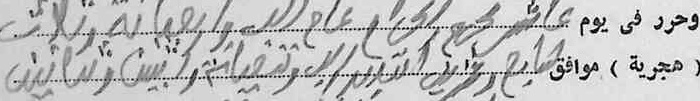 وحرر فى يوم عاشر محرم الحرام عام الف واربعمائة وثلاث
( هجرية ) موافق سابع وعشرين اكتوبر الف وتسعمائة واثنين وثمانين